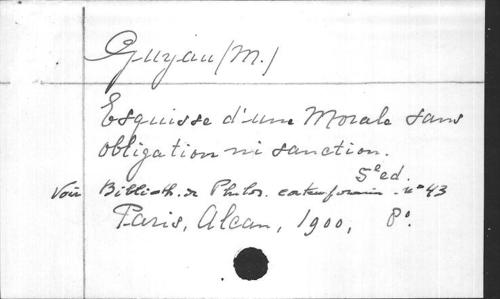 Guyau (M.)
Esquisse d'une Morale sans
obligation ni sanction.
5e ed.
Voir Biblioth. de Philos. contemporain. no 43
Paris, Alcan, 1900, 8o.